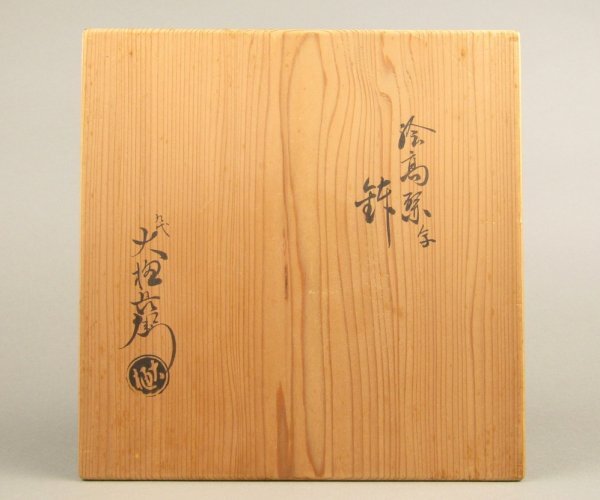 絵高麗写
鉢
九代
大樋長左衛門